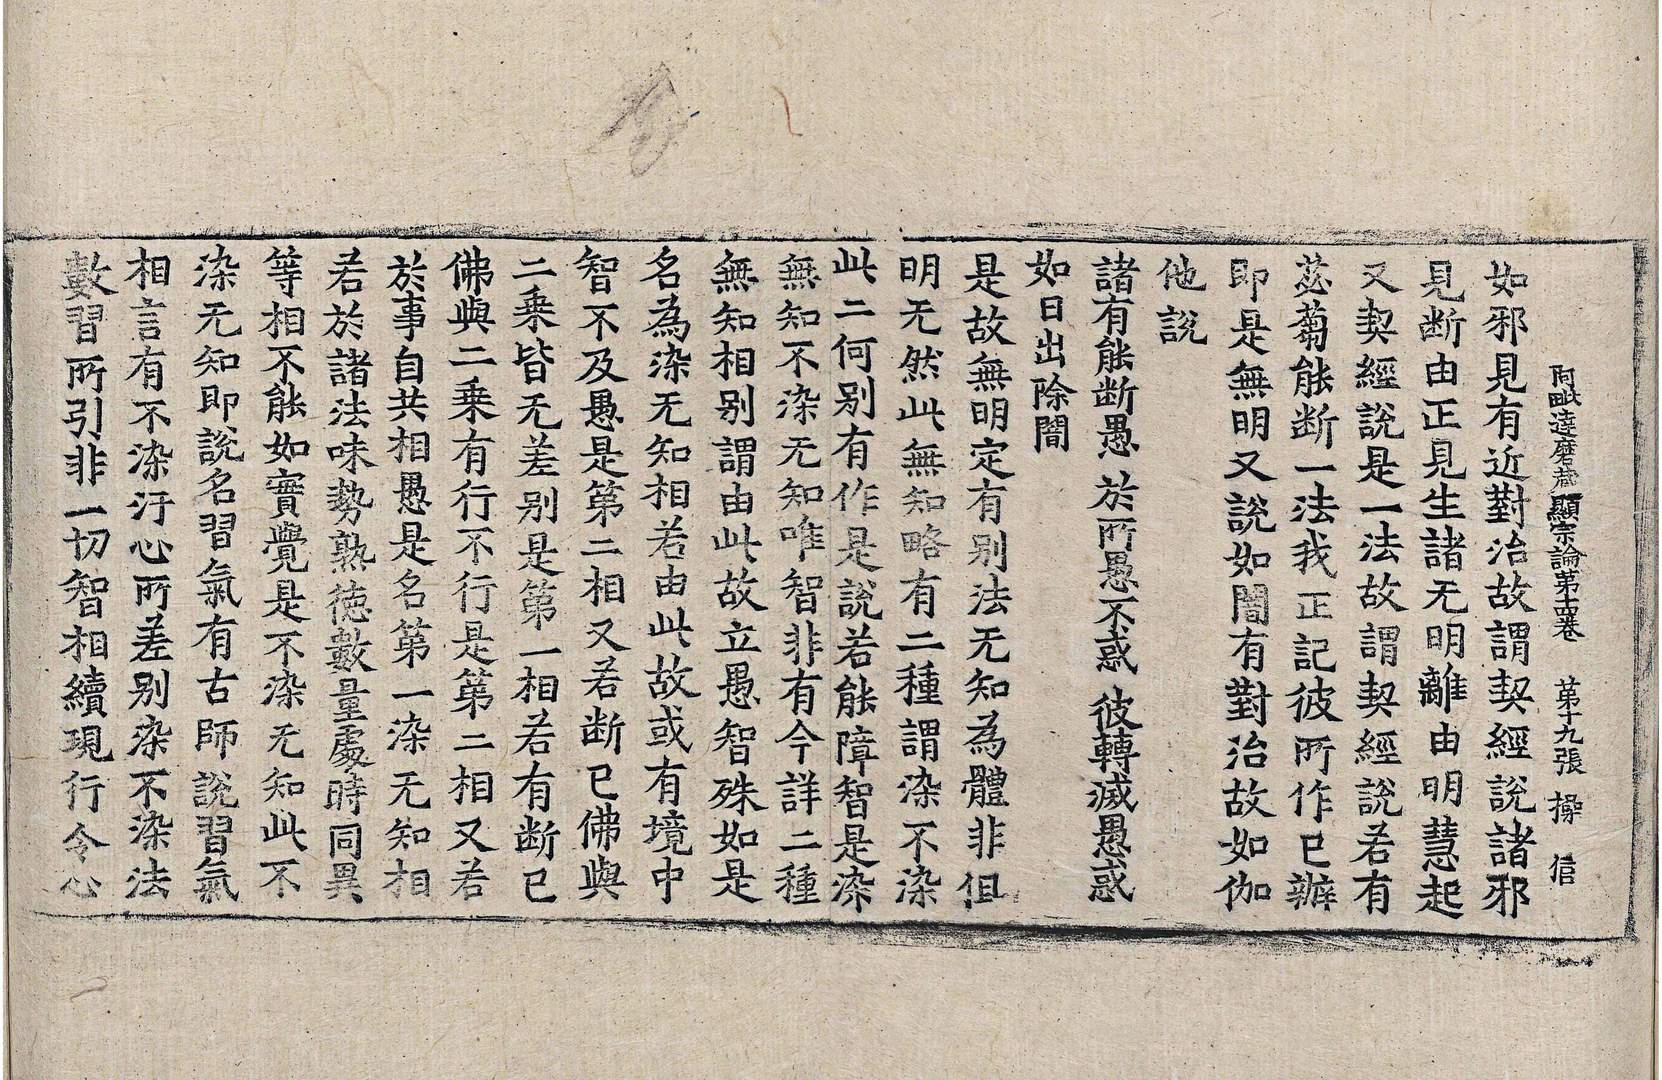 阿毗達磨藏顯宗論第十四卷 第十九張 操 信
如邪見有近對治故謂契經說諸邪
見断由正見生諸无明離由明慧起
又契經說是一法故謂契經說若有
苾蒭能断一法我正記彼所作已辦
即是無明又說如闇有對治故如伽
他說
諸有能断愚 於所愚不惑 彼轉滅愚惑
如日出除闇
是故無明定有别法无知為體非但
明无然此無知略有二種謂染不染
此二何别有作是說若能障智是染
無知不染无知唯智非有今詳二種
無知相别謂由此故立愚智殊如是
名為染无知相若由此故或有境中
智不及愚是第二相又若断已佛與
二乗皆无差别是第一相若有断已
佛與二乗有行不行是第二相又若
於事自共相愚是名第一染无知相
若於諸法味勢熟德數量處時同異
等相不能如實覺是不染无知此不
染无知即說名習氣有古師說習氣
相言有不染汙心所差别染不染法
數習所引非一切智相續現行令心